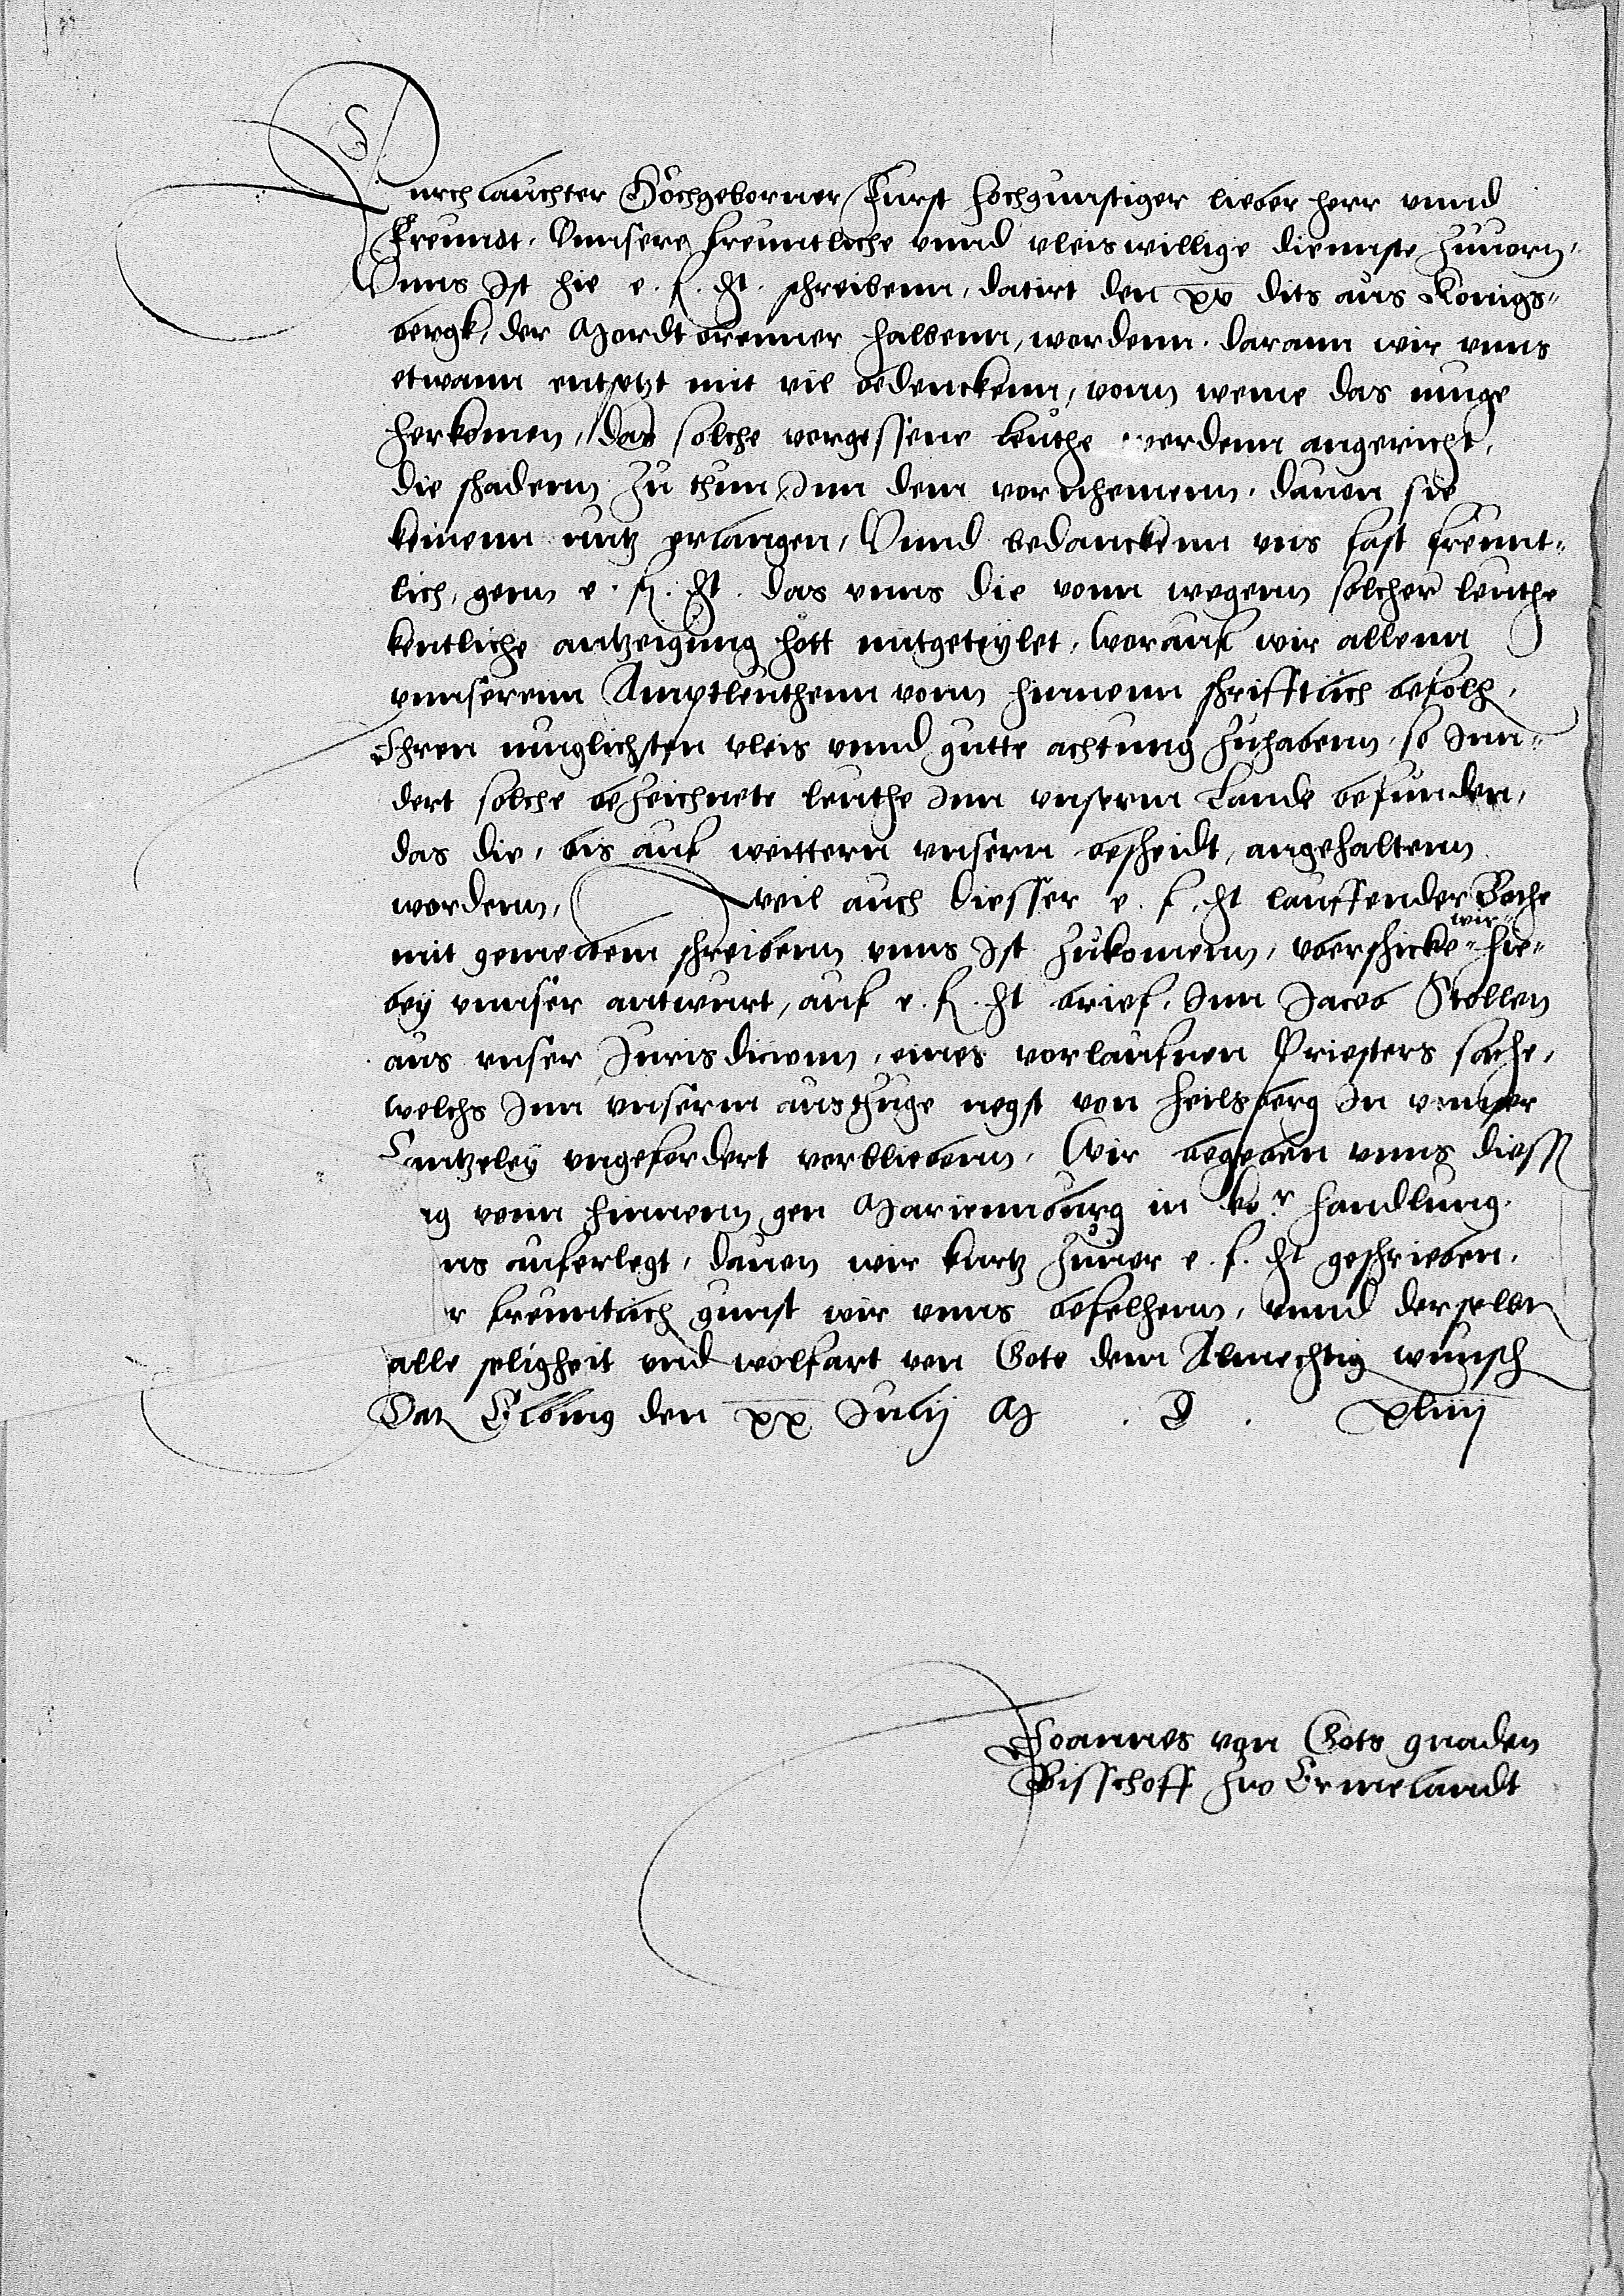 Durchlauchter Hochgeborner Furst hochgunstiger lieber herr vnnd
Freundt. Vnnsere freuntliche vnnd vleiswillige diennste zuuorn.
Vnns ist hie e. f. dt. schreibenn, datirt den xv dits aus Konigs-
bergk, der Mordtbrenner halbenn, wordenn. darann wir vnns
etwann entsetzt mit vil bedenckenn, vonn weme das muge
herkomen, das solche vorgessene leuthe werdenn angericht,
die schadenn zu thun, Inn dem vornhemenn, dauon sie
keinenn nutz erlangen, Vnnd bedanckenn vns fast freunt-
lich, genn e. f. dt. das vnns die vonn wegenn solcher leuthe
kentliche antzeigung hott mitgeteylet, worauf wir allenn
vnnserenn Amptleuthenn vonn hinnenn schrifftlich befolh,
Ihren muglichsten vleis vnnd gutte achtung zuhabenn, so Inn-
dert solche bezeichnete leuthe Inn vnserm Lande befunden,
das die, bis auf weittern vnsern bescheidt, angehaltenn
wordenn, Weil auch diesser e. f. dt lauffender Bothe
mit gemeltem schreibenn vnns ist zukomenn, vberschicke wir hie-
bey vnnser antwurt, auf e. f. dt brief, Inn Jacob Stollen
aus vnser Jurisdicion, eines vorlaufnen Priesters sache,
welchs Inn vnserm auszuge negst von Heilsberg In vnnser
Cantzeley vngefordert verbliebenn. Wir begeben vnns diess
ag vonn hinnenn gen Mariennburg in ko.r handlung.
ns auferlegt, dauon wir kurtz zuuor e. f. dt geschrieben.
r freuntlich gunst wir vnns befelhenn, vnnd derselben
alle seligheit vnd wolfart von Gote dem Almechtig wunsch
Dat Elbing den xx Julij M . D . xliiij
Joannes von Gots gnaden
Bisschoff zw Ermelandt